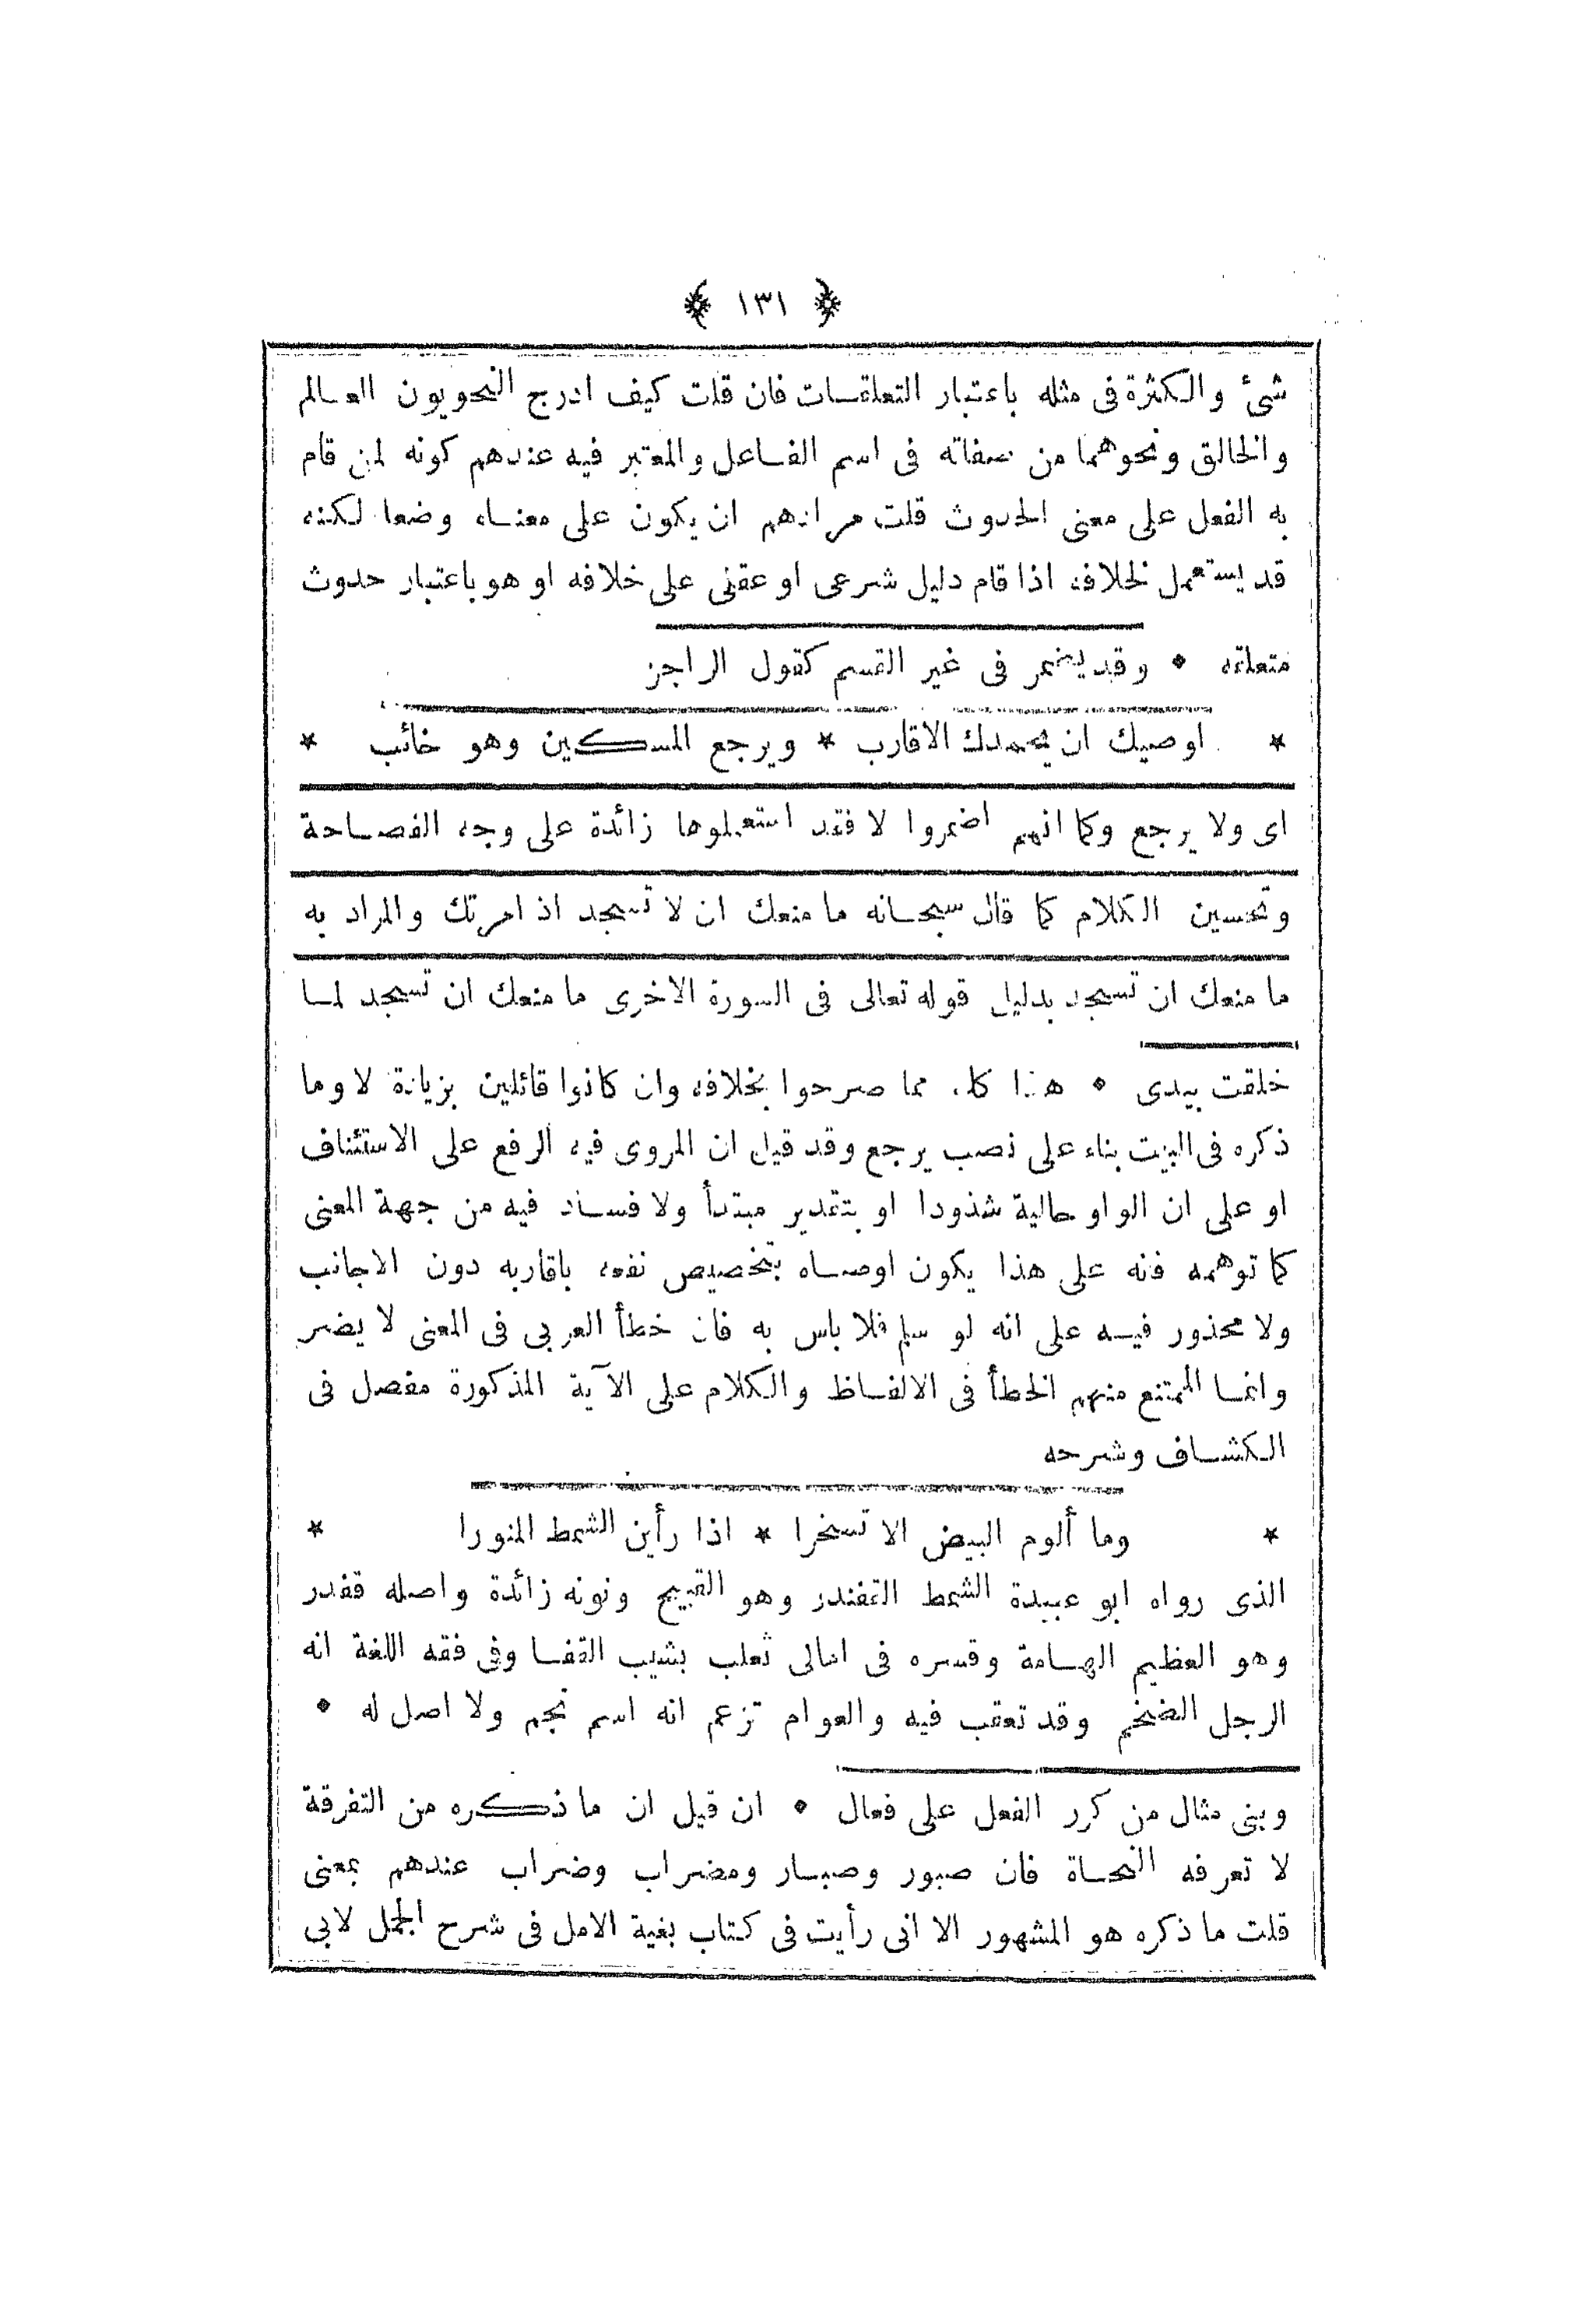 ﴿ ١٣١ ﴾
شئ والكثرة فى مثله باعتبار التعلقات فان قلت كيف ادرج النحويون العالم
والخالق ونحوهما من صفاته فى اسم الفاعل والمعتبر فيه عندهم كونه لمن قام
به الفعل على معنى الحدوث قلت مرادهم ان يكون على معناه وضعا لكنه
قد يستعمل لخلافه اذا قام دليل شرعى او عقلى على خلافه او هو باعتبار حدوث
متعلقه * وقد يضمر فى غير القسم كقول الراجز
* اوصيك ان يحمدك الاقارب * ويرجع المسكين وهو خائب *
اى ولا يرجع وكما انهم اضمروا لا فقد استعملوها زائدة على وجه الفصاحة
وتحسين الكلام كما قال سبحانه ما منعك ان لا تسجد اذ امرتك والمراد به
ما منعك ان تسجد بدليل قوله تعالى فى السورة الاخرى ما منعك ان تسجد لما
خلقت بيدى * هذا كله مما صرحوا بخلافه وان كانوا قائلين بزيادة لا وما
ذكره فى البيت بناء على نصب يرجع وقد قيل ان المروى فيه الرفع على الاستئناف
او على ان الواو حالية شذودا او بتقدير مبتدأ ولا فساد فيه من جهة المعنى
كما توهمه فنه على هذا يكون اوصاه بتخصيص نفعه باقاربه دون الاجانب
ولا محذور فيه على انه لو سلم فلا باس به فان خطأ العربى فى المعنى لا يضر
وانما الممتنع منهم الخطأ فى الالفاظ والكلام على الآية المذكورة مفصل فى
الكشاف وشرحه
* وما ألوم البيض الا تسخرا * اذا رأين الشمط المنورا *
الذى رواه ابو عبيدة الشمط القفندر وهو القبيح ونونه زائدة واصله قفدر
وهو العظيم الهامة وفسره فى امالى ثعلب بشيب القفا وفى فقه اللغة انه
الرجل الضخم وقد تعقب فيه والعوام تزعم انه اسم نجم ولا اصل له *
وبنى مثال من كرر الفعل على فعال * ان قيل ان ما ذكره من التفرقة
لا تعرفه النحاة فان صبور وصبار ومضراب وضراب عندهم بمعنى
قلت ما ذكره هو المشهور الا انى رأيت فى كتاب بغية الامل فى شرح الجمل لابى